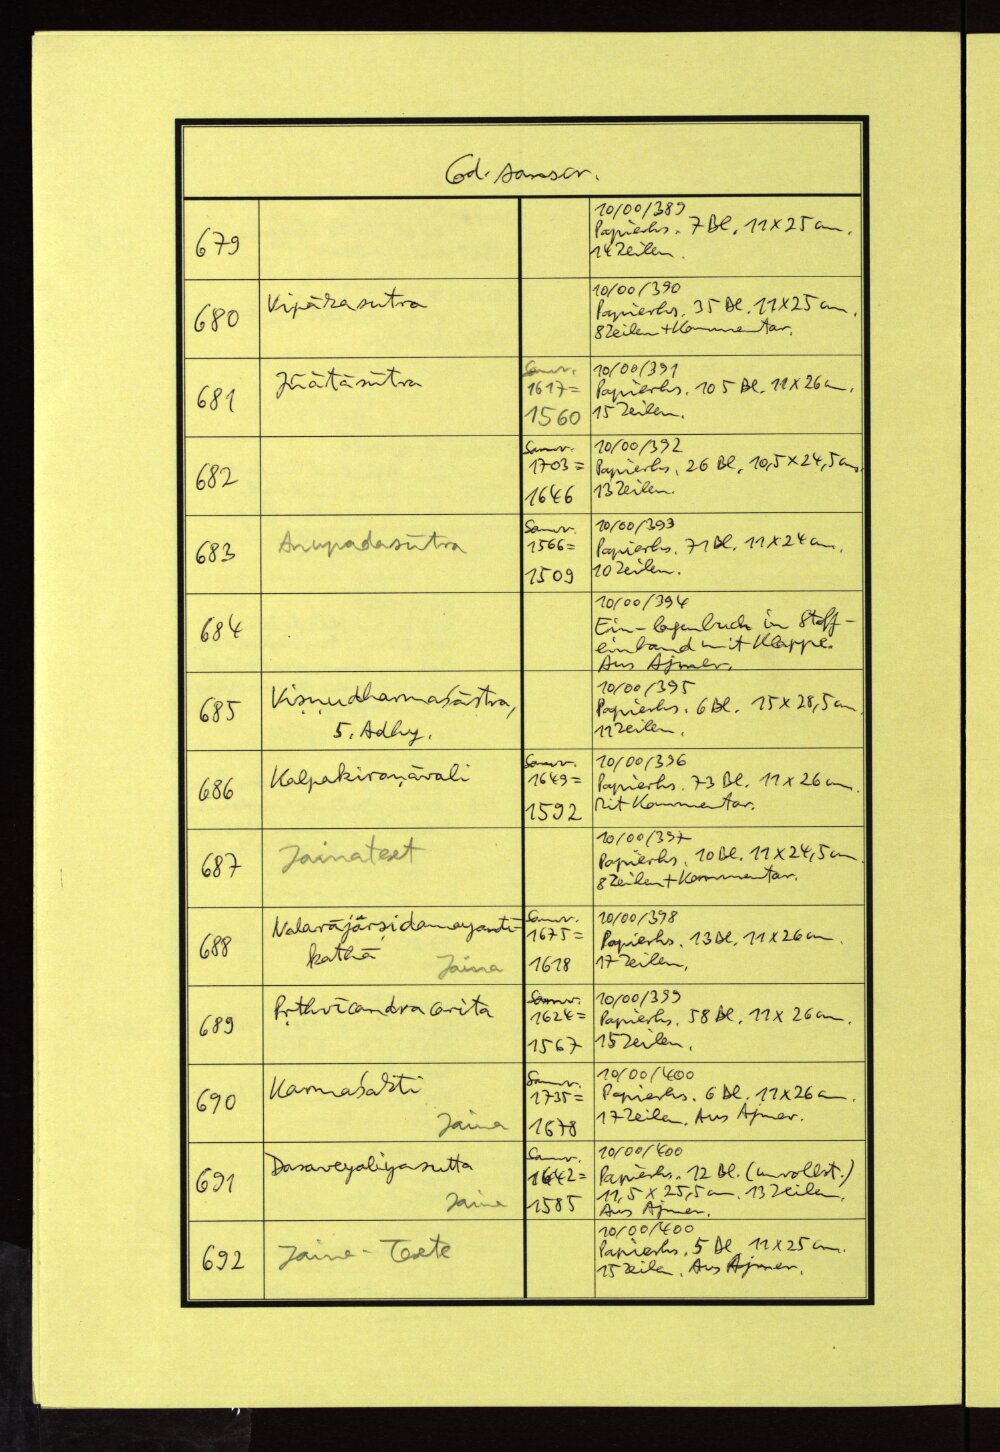 Cod. sanscr.
679
10/00/389
Papierhs. 7 Bl. 11 x 25 cm.
14 Zeilen.
680
Vipākasutra
10/00/390
Papierhs. 35 Bl. 11 x 25 cm.
8 Zeilen + Kommentar.
681
Jñātāsūtra
Samv.
1617 =
1560
10/00/391
Papierhs. 105 Bl. 11 x 26 cm.
15 Zeilen.
682
Samv.
1703 =
1646
10/00/392
Papierhs. 26 Bl. 10,5 x 24,5 cm.
13 Zeilen.
683
Anupadasūtra
Samv.
1566 =
1509
10/00/393
Papierhs. 71 Bl. 11 x 24 cm.
10 Zeilen.
684
10/00/394
Ein-lagenbuch in Stoff-
einband mit Klappe.
Aus Ajmer.
685
Viṣṇudharmaśāstra,
5. Adhy.
10/00/395
Papierhs. 6 Bl. 15 x 28,5 cm.
11 Zeilen.
686
Kalpakiraṇāvali
Samv.
1649 =
1592
10/00/396
Papierhs. 73 Bl. 11 x 26 cm.
Mit Kommentar.
687
Jainatext
10/00/397
Papierhs. 10 Bl. 11 x 24,5 cm.
8 Zeilen + Kommentar.
688
Nalarājārṣidamayantī-
kathā
Jaina
Samv.
1675 =
1618
10/00/398
Papierhs. 13 Bl. 11 x 26 cm.
17 Zeilen.
689
Pṛthvīcandracarita
Samv.
1624 =
1567
10/00/399
Papierhs. 58 Bl. 11 x 26 cm.
15 Zeilen.
690
Karmaśakti
Jaina
Samv.
1735 =
1678
10/00/400
Papierhs. 6 Bl. 11 x 26 cm.
17 Zeilen. Aus Ajmer.
691
Dasaveyaliyasutta
Jaina
Samv.
1642 =
1585
10/00/400
Papierhs. 12 Bl. (unvollst.)
11,5 x 25,5 cm. 13 Zeilen.
Aus Ajmer.
692
Jaina-Texte
10/00/400
Papierhs. 5 Bl. 11 x 25 cm.
15 Zeilen. Aus Ajmer.